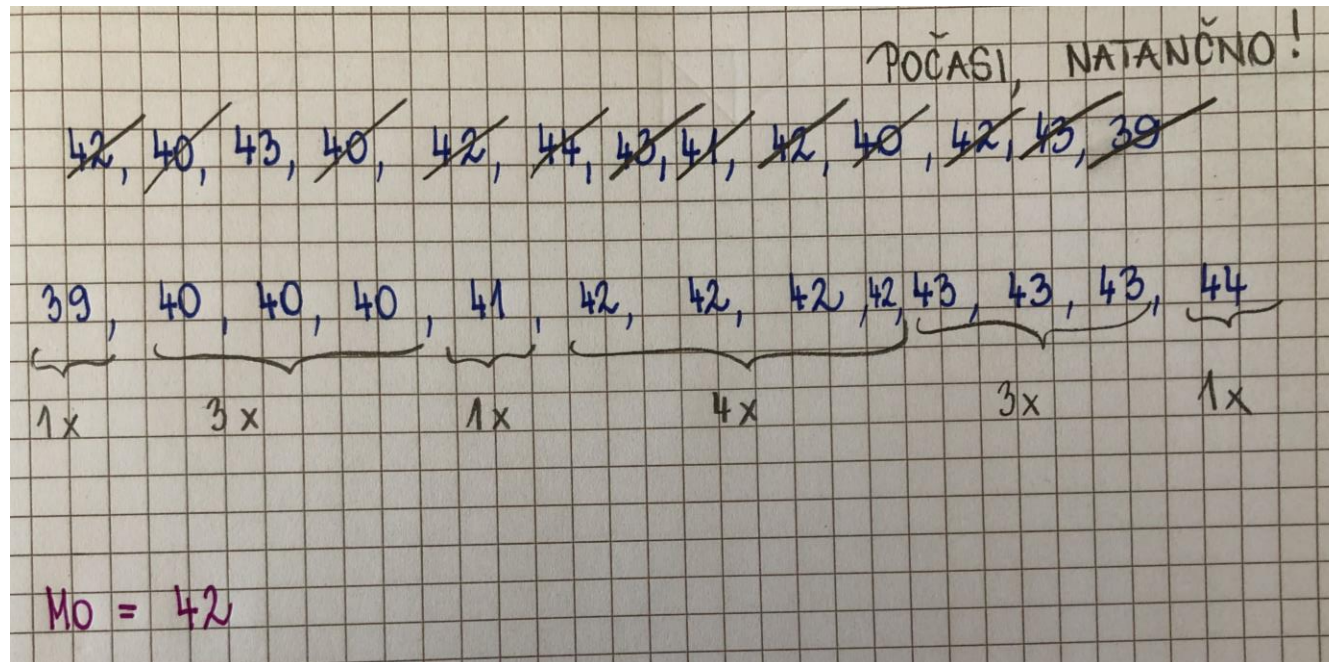 POČASI, NATANČNO!
42, 40, 43, 40, 42, 44, 43, 41, 42, 40, 42, 43, 39
39, 40, 40, 40, 41, 42, 42, 42, 42, 43, 43, 43, 44
1x 3x 1x 4x 3x 1x
MO = 42